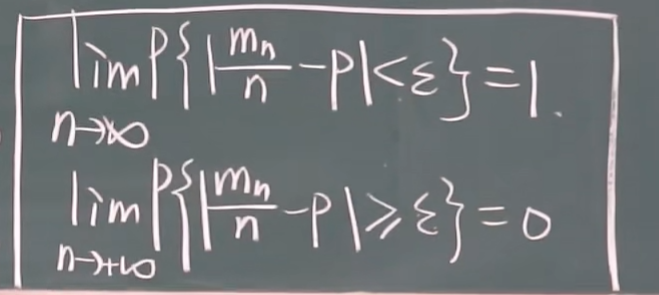 lim P{|mₙ/n - p| < ε} = 1.
n→∞
lim P{|mₙ/n - p| ≥ ε} = 0
n→+∞